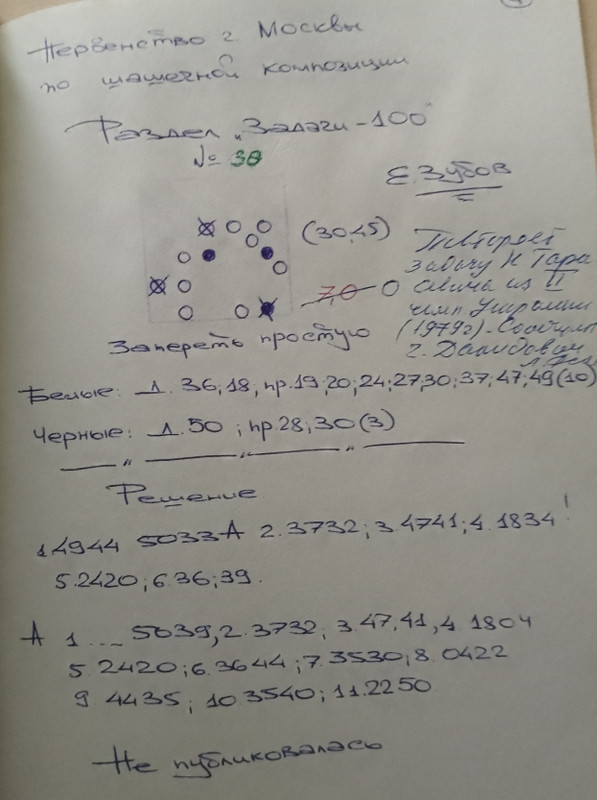 Первенство г. Москвы
по шашечной композиции
Раздел „Задачи-100"
№ 38
Е. Зубов
(30,45)
Повторяет
задачу Н Тара
севича из II
7,0 0
чемп. Украины
(1979г). Сообщил
Запереть простую
г. Далидович
Белые: Д. 36,18, пр.19;20;24;27,30;37;47;49(10)
Черные: Д.50 ; пр.28;30(3)
Решение
1.4944 5033А 2.3732; 3.4741; 4.1834!
5.2420; 6.36;39.
А 1... 5039, 2.3732; 3.47,41, 4 1804
5.2420; 6.3644; 7.3530; 8.0422
9 4435; 10.3540; 11.2250
Не публиковалась